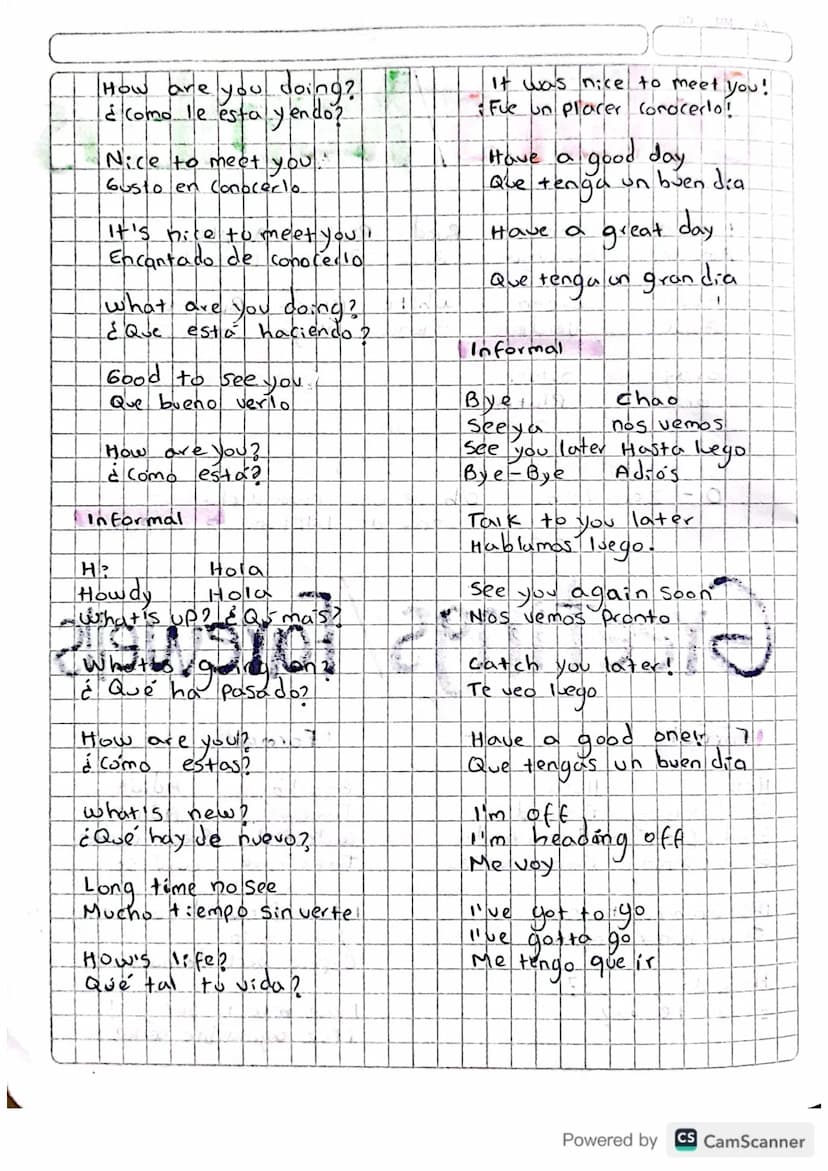 How are you doing?
¿Como le esta yendo?
Nice to meet you.
Gusto en conocerlo
It's nice to meet you
Encantado de conocerlo
what are you doing?
¿Que está haciendo?
Good to see you
Que bueno verlo
How are you?
¿Como está?
Informal
Hi Hola
Howdy Hola
What's up? ¿Q's más?
What's going on?
¿Qué ha pasado?
How are you?
¿Cómo estas?
what's new?
¿Qué hay de nuevo?
Long time no see
Mucho tiempo sin verte
How's life?
Qué tal tú vida?
It was nice to meet you!
¡Fue un placer conocerlo!
Have a good day
Que tenga un buen dia
Have a great day
Que tenga un gran dia
Informal
Bye Chao
See ya nos vemos
See you later Hasta luego
Bye-Bye Adiós
Talk to you later
Hablamos luego.
See you again soon
Nos vemos pronto
Catch you later!
Te veo luego
Have a good one!
Que tengas un buen día
I'm off
I'm heading off
Me voy
I've got to go
I've gotta go
Me tengo que ir
Powered by CS CamScanner